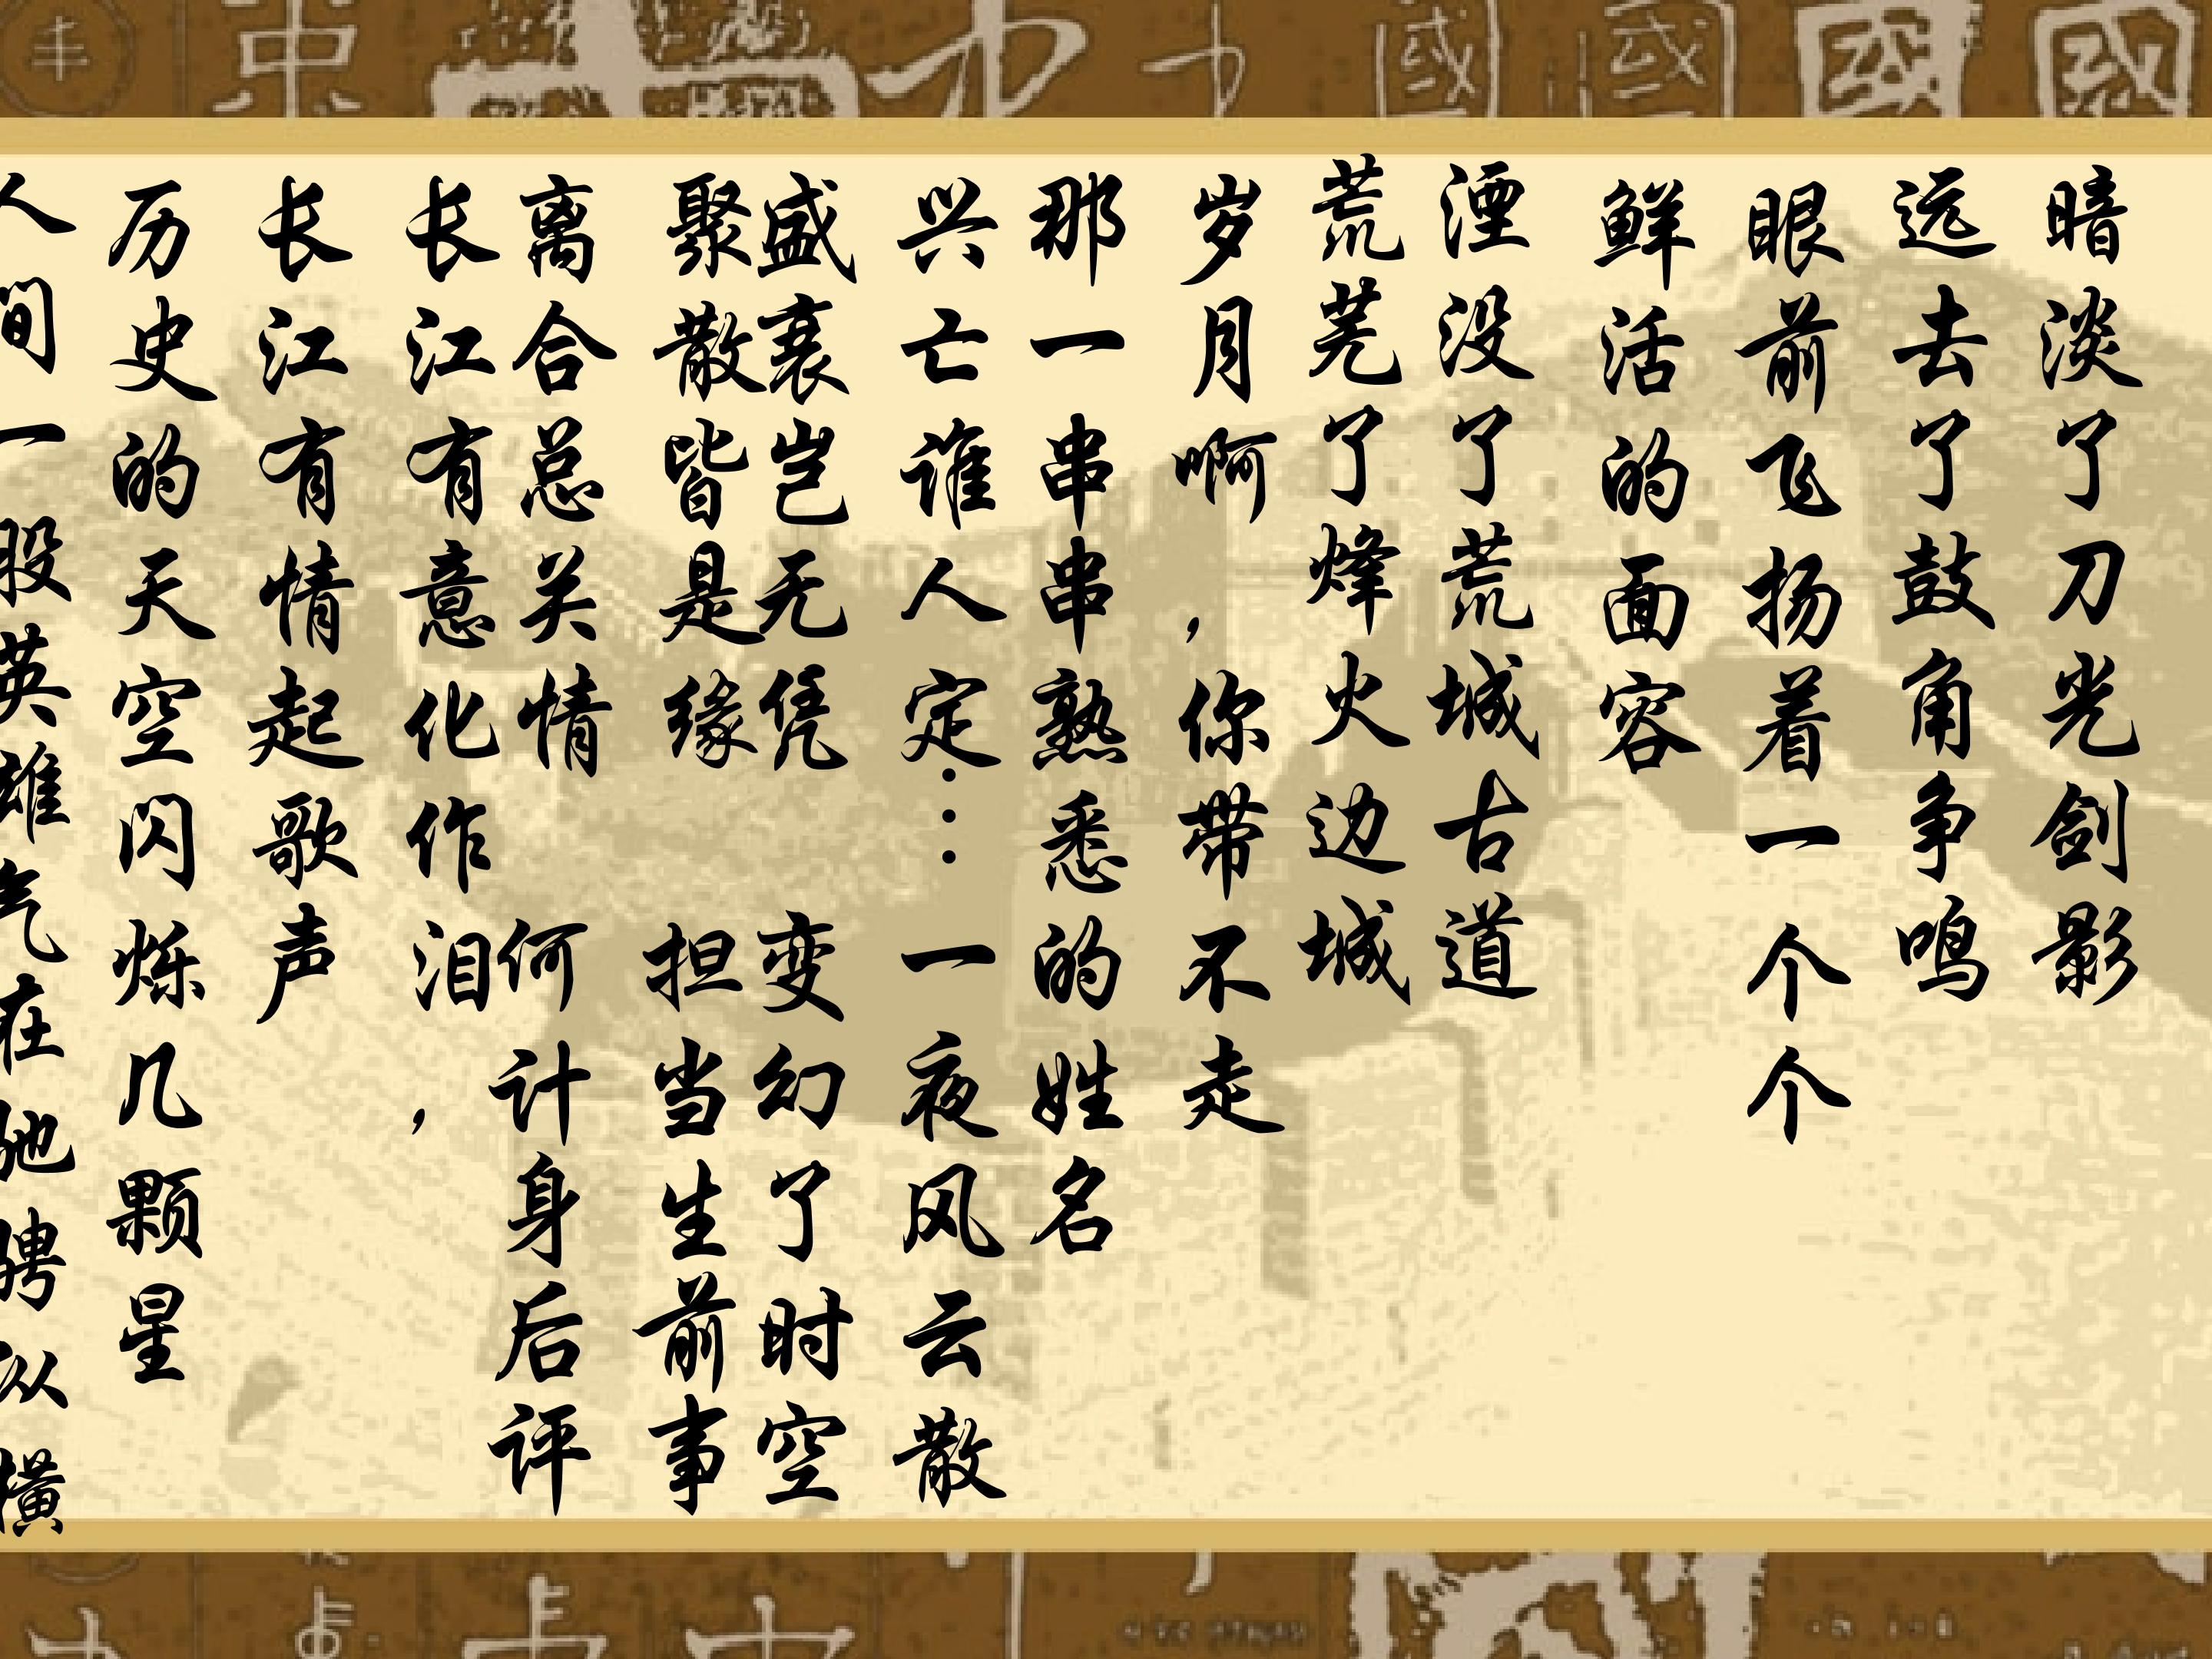 暗淡了刀光剑影
远去了鼓角争鸣
眼前飞扬着一个个
鲜活的面容
湮没了荒城古道
荒芜了烽火边城
岁月啊，你带不走
那一串串熟悉的姓名
兴亡谁人定… 一夜风云散
盛衰岂无凭 变幻了时空
聚散皆是缘 担当生前事
离合总关情 何计身后评
长江有意化作泪，
长江有情起歌声
历史的天空闪烁几颗星
人间一股英雄气在驰骋纵横